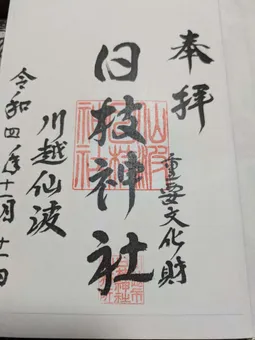 奉拝
重要文化財
日枝神社
川越仙波
令和四年十一月十一日